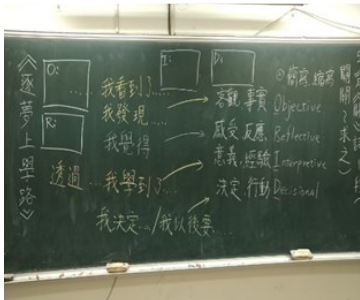 《逐夢上學路》
O:
R:
I:
D:
我看到了.....
我發現.....
我覺得
透過...我學到了...
我決定.../我以後要....
客觀 事實 Objective
感受 反應 Reflective
意義.經驗 Interpretive
決定 行動 Decisional
縮寫